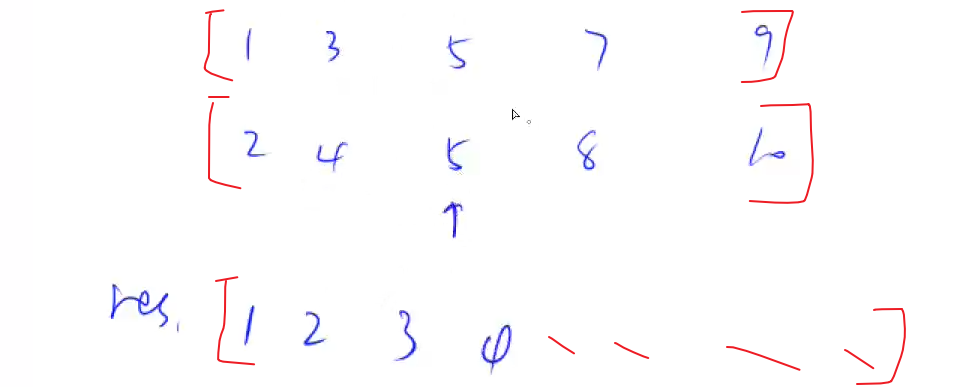 [ 1 3 5 7 9 ]
[ 2 4 5 8 10 ]
↑
res. [ 1 2 3 4 \ \ \ \ ]